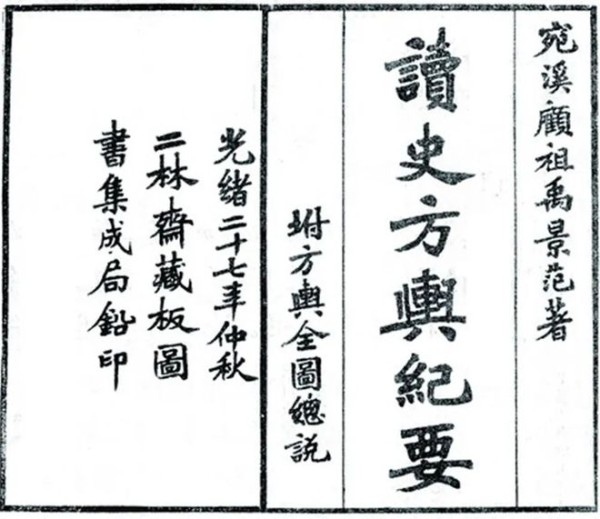 宛溪顧祖禹景范著
讀史方輿紀要
坿方輿全圖總説
光緒二十七年仲秋
二林齋藏板圖
書集成局鉛印